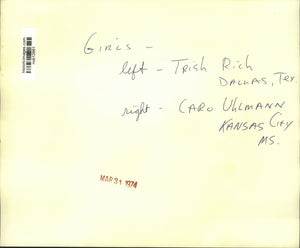 GIRLS -
left - TRISH RICH
DALLAS, TEX.
right - CARO UHLMANN
KANSAS CITY
MS.
MAR 31 1974